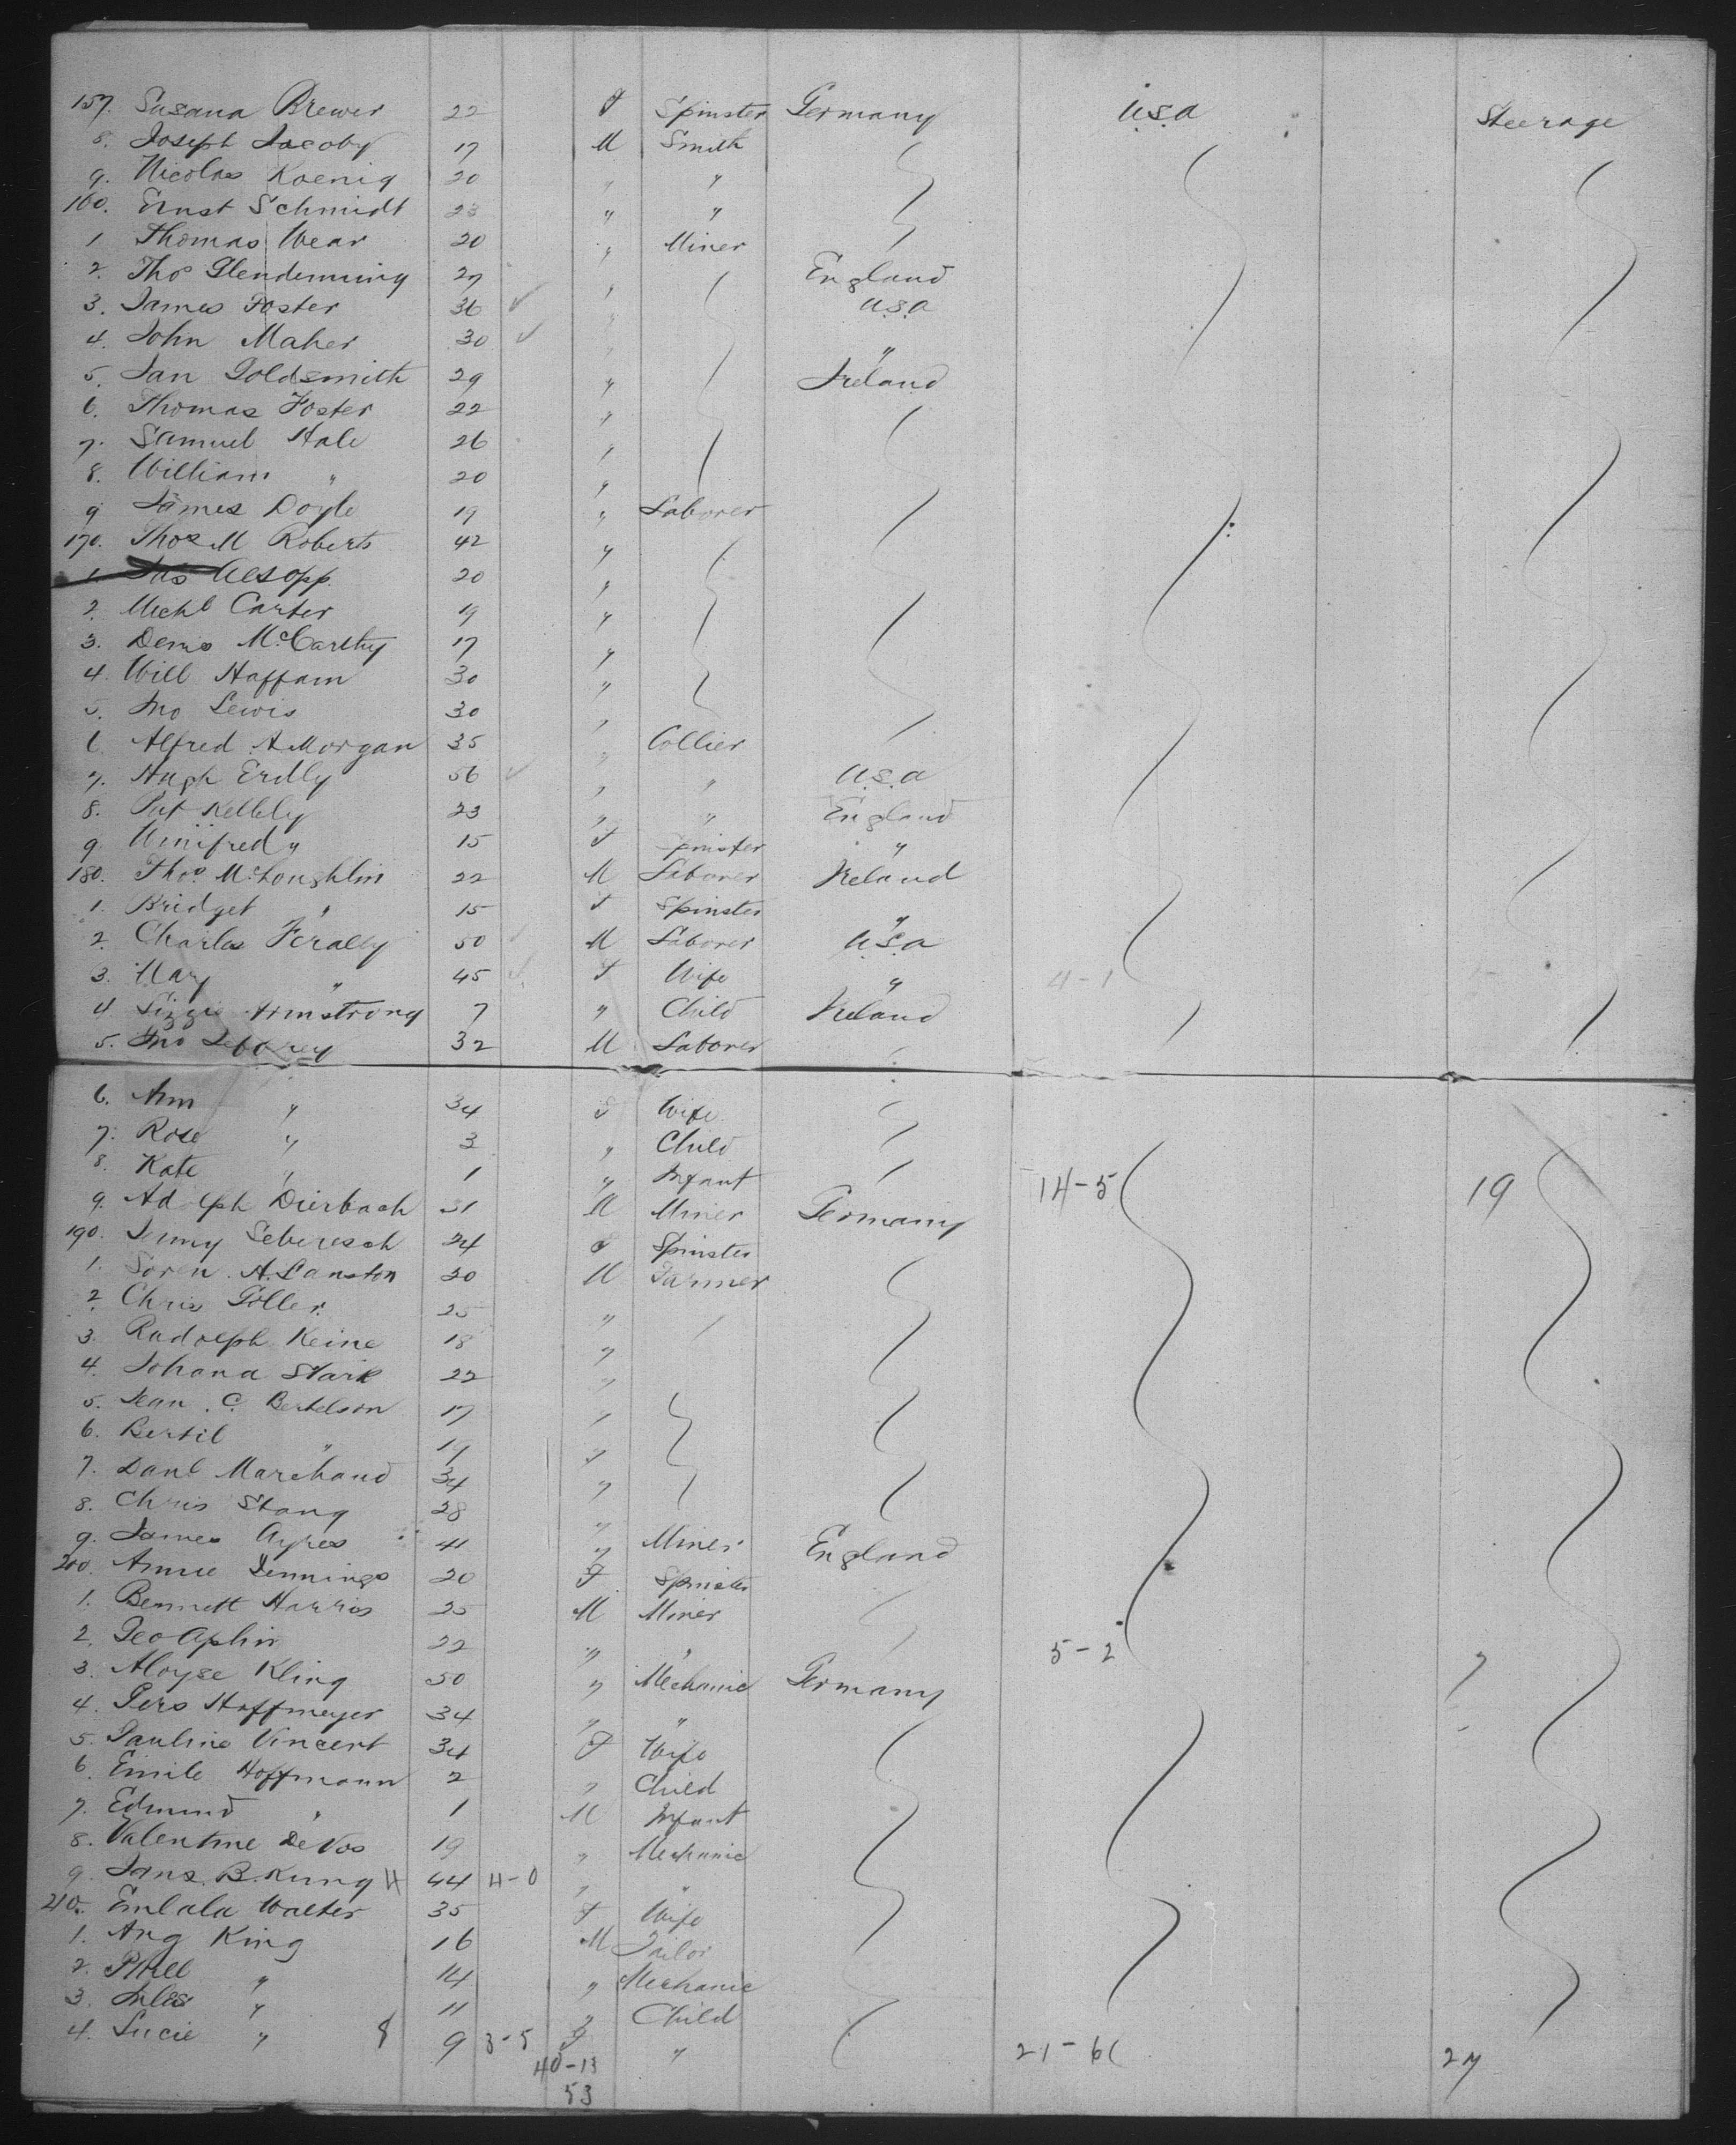 157. Susana Brewer 22 F Spinster Germany U.S.A Steerage
8. Joseph Jacoby 17 M Smith
9. Nicolas Koenig 20 " "
160. Ernst Schmidt 23 " "
1 Thomas Wear 20 " Miner
2. Thos Glendenning 27 " England
3. James Foster 36 ✓ " U.S.A
4. John Maher 30 ✓ " "
5. Jan Goldsmith 29 " Ireland
6. Thomas Foster 22 "
7. Samuel Hale 26 "
8. William " 20 "
9 James Doyle 19 " Laborer
170. Thos M Roberts 42 "
1. Jas Alsopp. 20 "
2. Michl Carter 19 "
3. Denis McCarthy 17 "
4. Will Haffam 30 "
5. Jno Lewis 30 "
6. Alfred A Morgan 35 " Collier
7. Hugh Erdly 56 ✓ " " U.S.A
8. Pat Kellely 23 " " England
9. Winifred " 15 F Spinster "
180. Thos. McLoughlin 22 M Laborer Ireland
1. Bridget " 15 F Spinster "
2. Charles Ferally 50 ✓ M Laborer U.S.A
3. Mary " 45 ✓ F Wife " 4-1
4. Lizzie Armstrong 7 " Child Ireland
5. Jno 32 M Laborer
6. Ann " 34 F Wife
7. Rose " 3 " Child
8. Kate " 1 " Infant
9. Adolph Dierbach 31 M Miner Germany 14-5 19
190. Jenny Seberesch 24 F Spinster
1. Soren A. Lanston 30 M Farmer
2. Chris Göller 25 "
3. Rudolph Keine 18 "
4. Johana Stark 22 "
5. Jean C. Bertelson 17 "
6. Bertil " 19 "
7. Danl Marchand 34 "
8. Chris Stang 28 "
9. James Ayres 41 " Miner England
200. Annie Jennings 20 F Spinster
1. Bennett Harris 25 M Miner
2. Geo Aplin 22 " " 5-2 7
3. Aloyse Kling 50 " Mechanic Germany
4. Pers Hoffmeyer 34 " "
5. Pauline Vincent 34 F Wife
6. Emile Hoffmann 2 " Child
7. Edmund " 1 M Infant
8. Valentine De Vos 19 " Mechanic
9. Jans. B. Kung H 44 4-0 " "
210. Emlala Walter 35 F Wife
1. Aug King 16 M Tailor
2. Phill " 14 " Mechanic
3. Jules " 11 " Child
4. Lucie " 8 9 3-5 F " 21-6 27
40-13
53